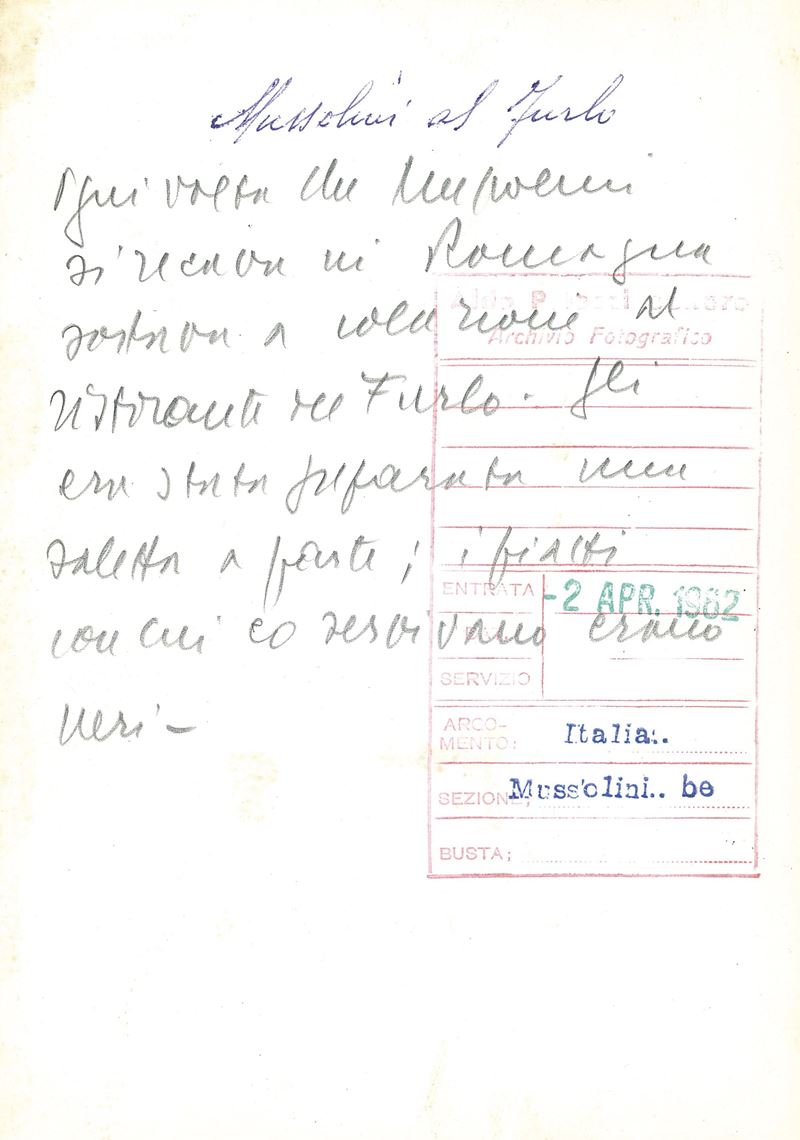 Mussolini al Furlo
Ogni volta che Mussolini
si recava in Romagna
sostava a colazione al
ristorante del Furlo. Gli
era stata preparata una
saletta a parte; i piatti
con cui lo servivano erano
neri -
Aldo P
Archivio Fotografico
ENTRATA
-2 APR. 1962
SERVIZIO
ARGO-
MENTO: Italia..
SEZIONE; Mussolini.. be
BUSTA;